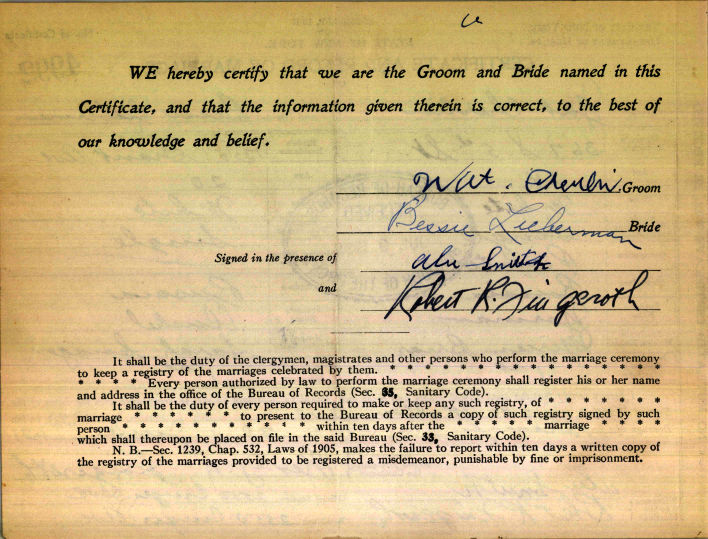 WE hereby certify that we are the Groom and Bride named in this
Certificate, and that the information given therein is correct, to the best of
our knowledge and belief.
Groom
Bessie Lieberman Bride
Signed in the presence of Abe Smith
and Robert R. Fingeroth
It shall be the duty of the clergymen, magistrates and other persons who perform the marriage ceremony
to keep a registry of the marriages celebrated by them. * * * * * * * * * * * * *
* * * * Every person authorized by law to perform the marriage ceremony shall register his or her name
and address in the office of the Bureau of Records (Sec. 35, Sanitary Code).
It shall be the duty of every person required to make or keep any such registry, of * * * * * *
marriage * * * * * * to present to the Bureau of Records a copy of such registry signed by such
person * * * * * * * * * * within ten days after the * * * * * marriage * * * *
which shall thereupon be placed on file in the said Bureau (Sec. 33, Sanitary Code).
N. B.—Sec. 1239, Chap. 532, Laws of 1905, makes the failure to report within ten days a written copy of
the registry of the marriages provided to be registered a misdemeanor, punishable by fine or imprisonment.